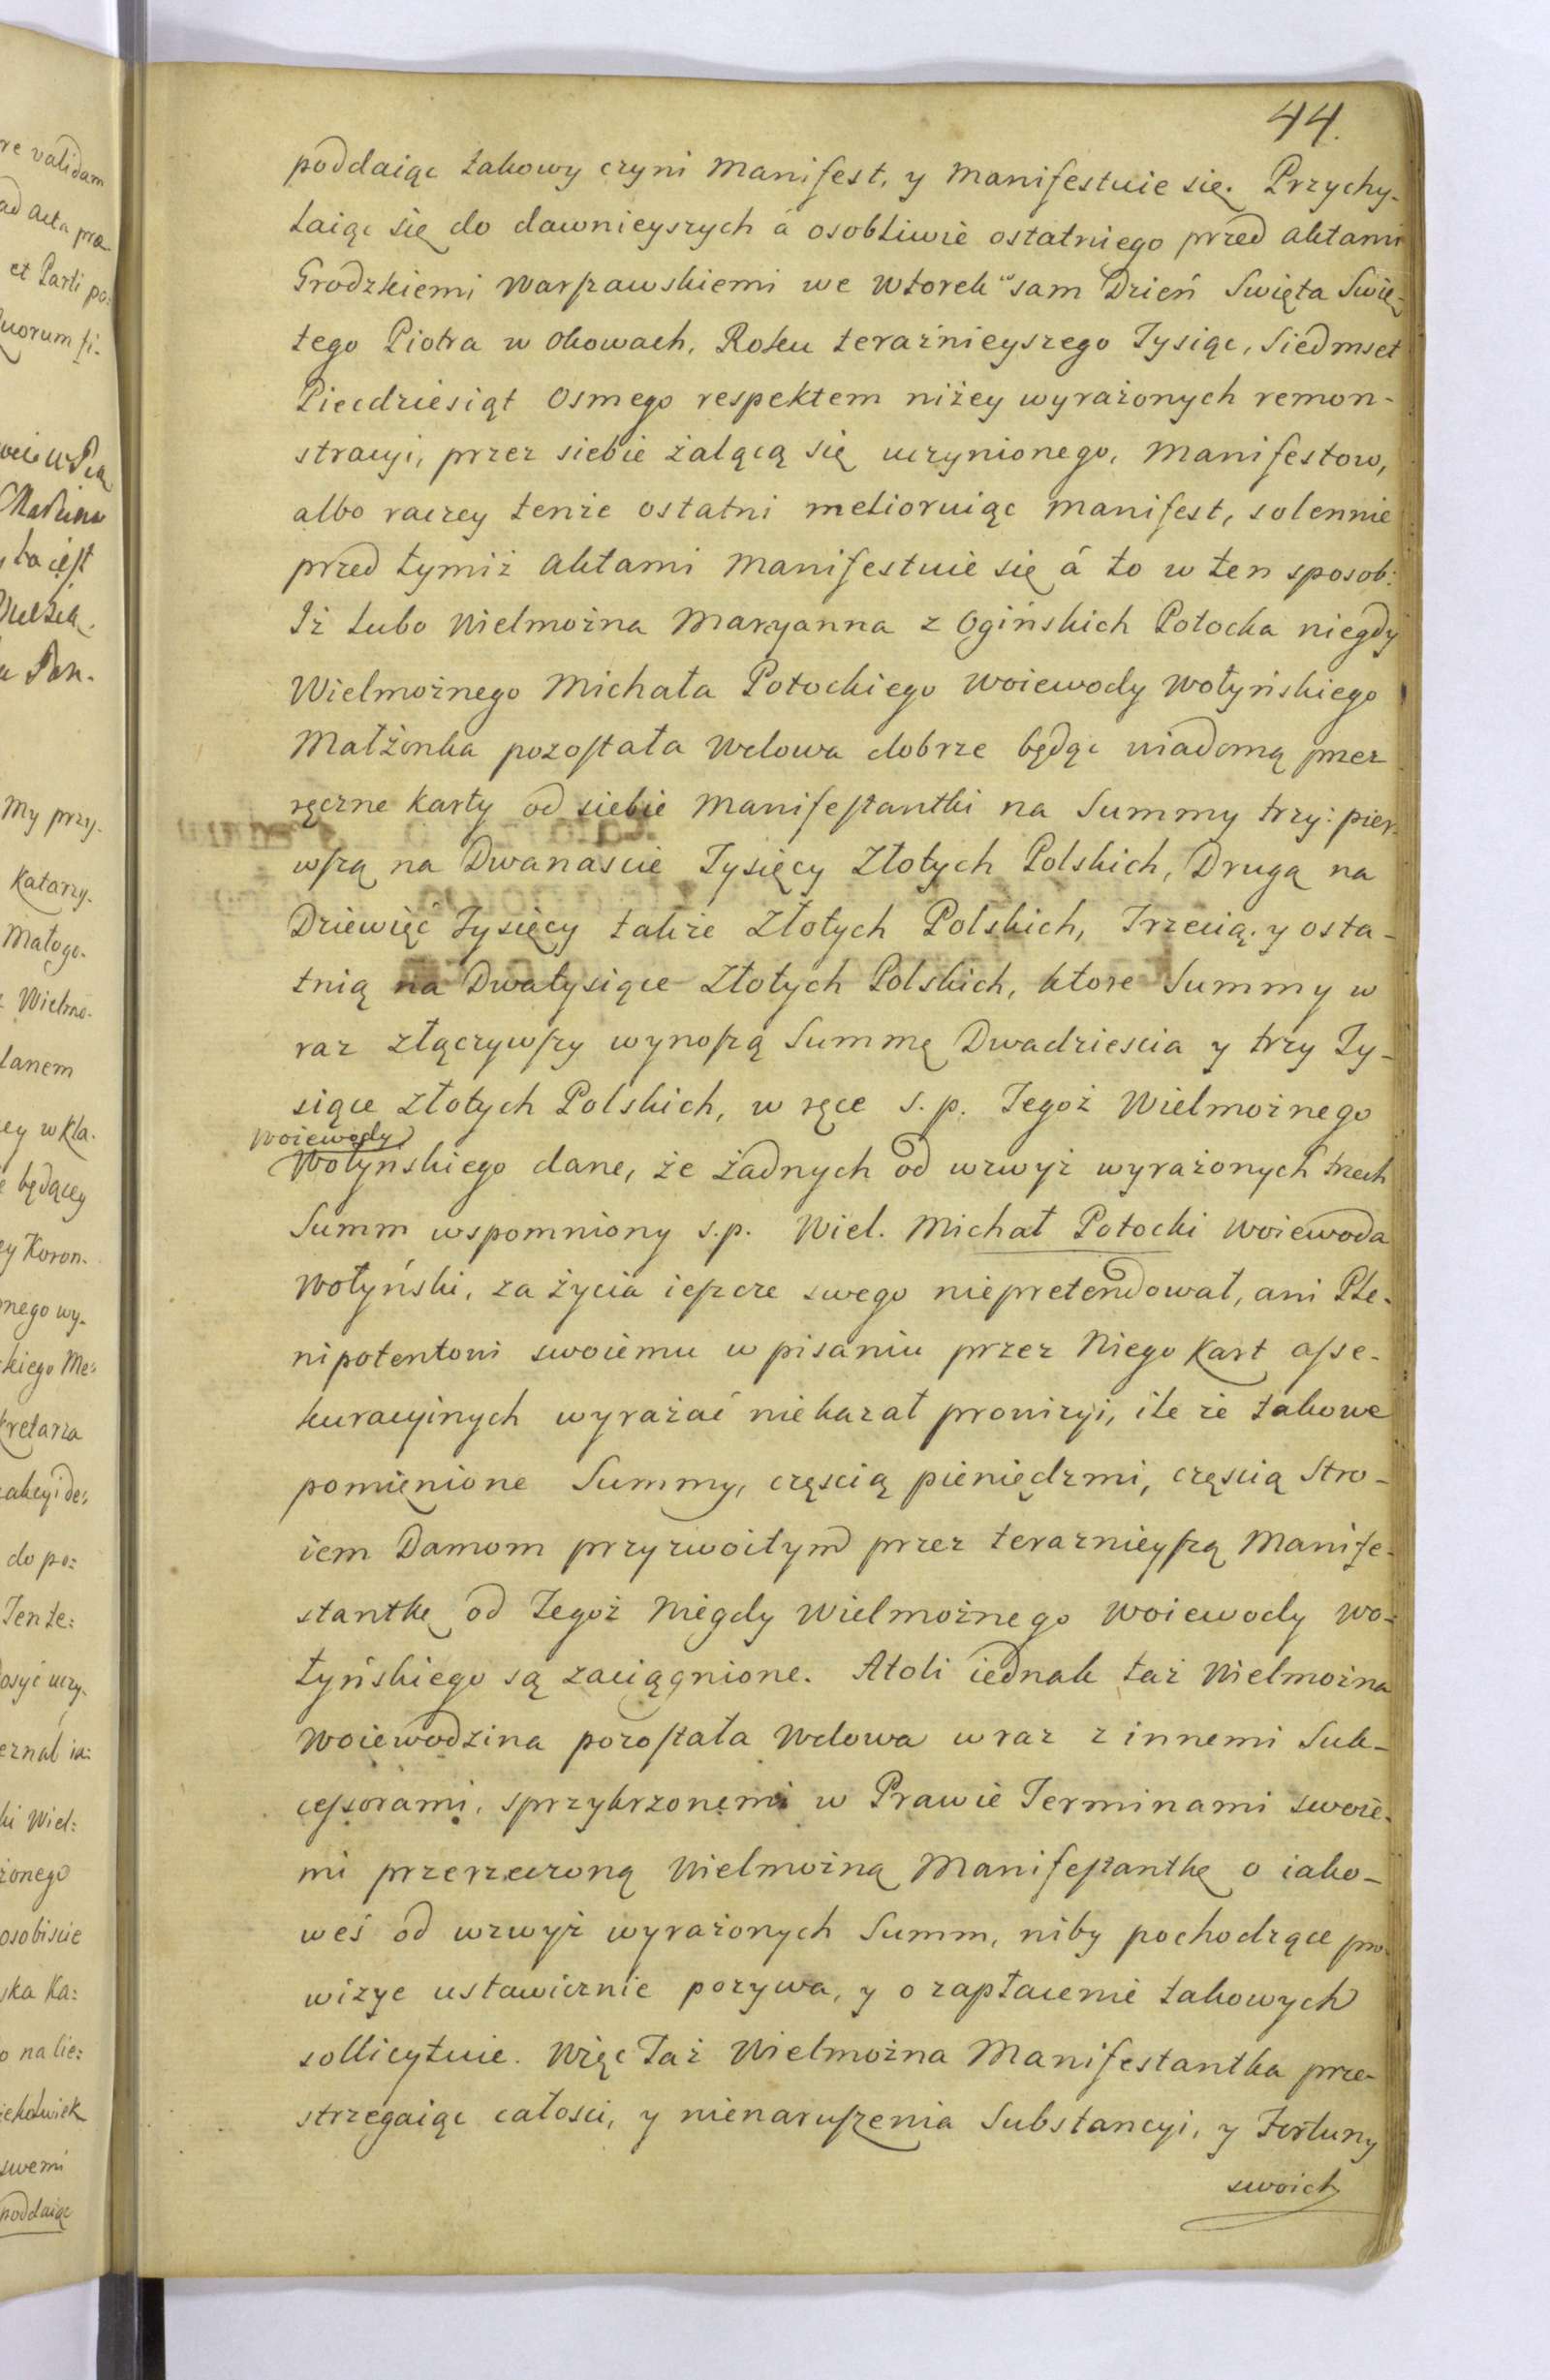 44.
poddaiąc takowy czyni Manifest, y Manifestuie się. Przychy-
laiąc się do dawnieyszych á osobliwie ostatniego przed aktami
Grodzkiemi Warszawskiemi we Wtorek sam Dzień Swięta Swię-
tego Piotra w Okowach, Roku teraźnieyszego Tysiąc, Siedmset
Piecdziesiąt Osmego respektem niżey wyrażonych remon-
stracyi, przez siebie żalącą się uczynionego, Manifestow,
albo raczey tenże ostatni melioruiąc Manifest, solennie
przed tymiż Aktami Manifestuie się á to w ten sposob:
Iż lubo Wielmożna Maryanna z Ogińskich Potocka niegdy
Wielmożnego Michała Potockiego Woiewody Wołyńskiego
Małżonka pozostała Wdowa dobrze będąc wiadomą przez
ręczne Karty od siebie Manifestantki na Summy trzy: pier-
wszą na Dwanascie Tysięcy Złotych Polskich, Drugą na
Dziewięć Tysięcy także Złotych Polskich, Trzecią y osta-
tnią na Dwatysiące Złotych Polskich, ktore Summy w
raz złączywszy wynoszą Summę Dwadziescia y trzy Ty-
siące Złotych Polskich, w ręce s. p. Tegoż Wielmożnego
Woiewody
Wołyńskiego dane, że żadnych od wzwyż wyrażonych trzech
Summ wspomniony s.p. Wiel. Michał Potocki Woiewoda
Wołyński, za życia ieszcze swego niepretendował, ani Ple-
nipotentowi swoiemu w pisaniu przez Niego Kart asse-
kuracyinych wyrażać niekazał prowizyi, ile że takowe
pomienione Summy, częscią pieniędzmi, częscią Stro-
iem Damom przyzwoitym przez teraznieyszą Manife-
stantkę od Tegoż Niegdy Wielmożnego Woiewody Wo-
łyńskiego są zaciągnione. Atoli iednak taż Wielmożna
Woiewodzina pozostała Wdowa wraz z innemi Suk-
cessorami, sprzykrzonemi w Prawie Terminami swoie-
mi przerzeczoną Wielmożną Manifestantkę o iako-
weś od wzwyż wyrażonych Summ, niby pochodzące pro-
wizye ustawicznie pozywa, y o zapłacenie takowych
sollicytuie. Więc Taż Wielmożna Manifestantka prze-
strzegaiąc całosci, y nienaruszenia Substancyi, y Fortuny
swoich